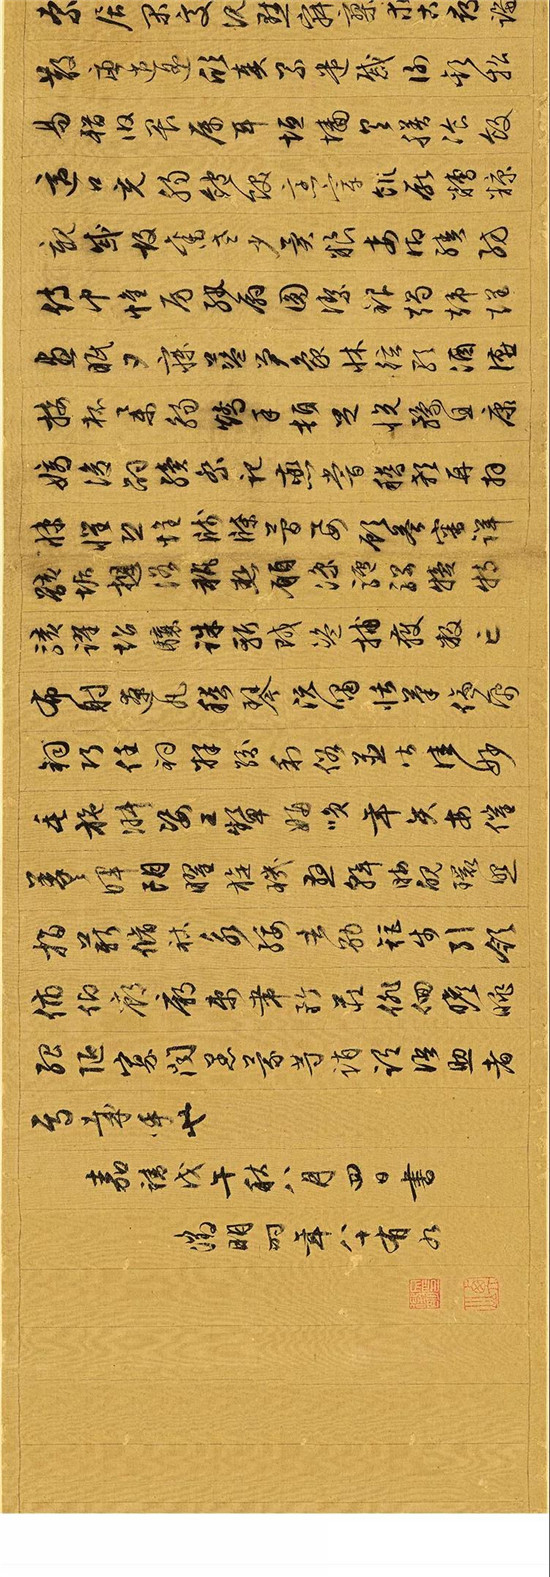 索居閒處沉默寂寥求古尋論
散慮逍遙欣奏累遣慼謝歡招
易輶攸畏屬耳垣牆具膳飡飯
適口充腸飽飫烹宰飢厭糟糠
親戚故舊老少異糧妾御績紡
侍巾帷房紈扇圓潔銀燭煒煌
晝眠夕寐藍笋象床弦歌酒讌
接杯舉觴矯手頓足悅豫且康
嫡後嗣續祭祀蒸嘗稽顙再拜
悚懼恐惶牋牒簡要顧答審詳
骸垢想浴執熱願涼驢騾犢特
駭躍超驤誅斬賊盜捕獲叛亡
布射遼丸嵇琴阮嘯恬筆倫紙
鈞巧任釣釋紛利俗並皆佳妙
毛施淑姿工顰妍笑年矢每催
曦暉朗曜璇璣懸斡晦魄環照
指薪修祜永綏吉劭矩步引領
俯仰廊廟束帶矜莊徘徊瞻眺
孤陋寡聞愚蒙等誚謂語助者
焉哉乎也
嘉靖戊午秋八月四日書
徵明時年八十有九